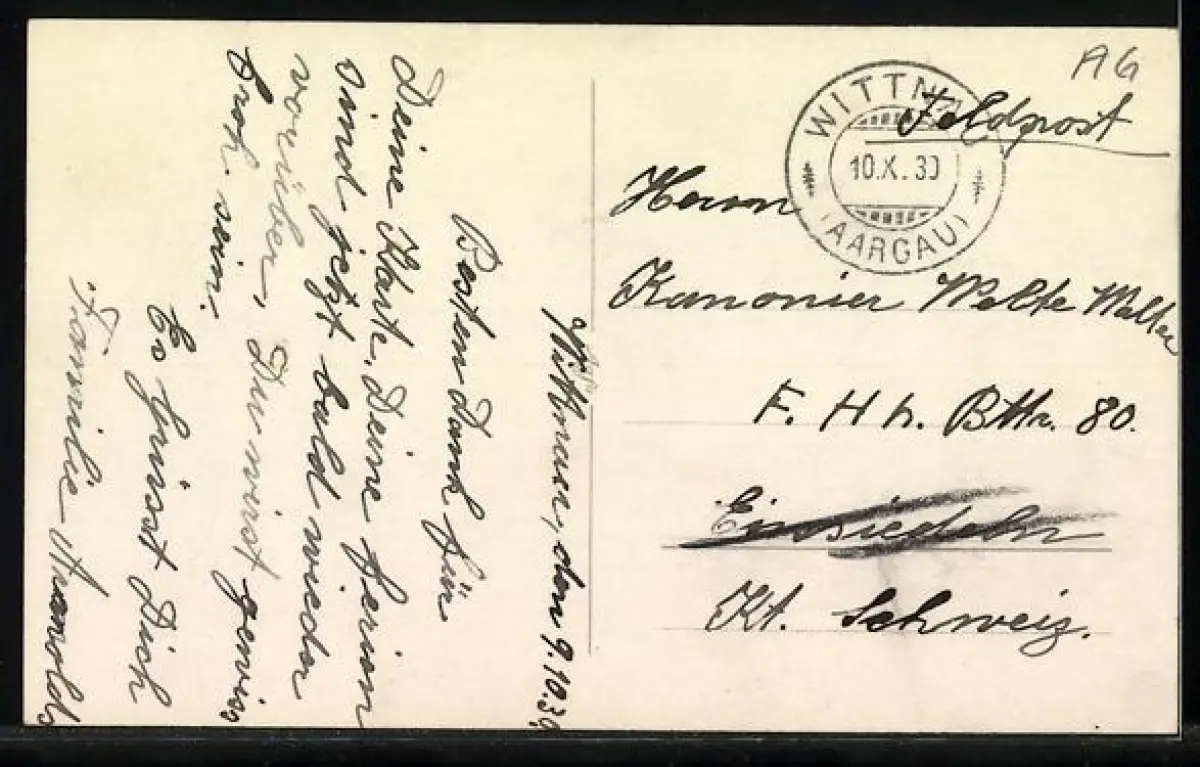 AG
WITTNAU
10.X.39
(AARGAU)
Feldpost
Herrn
Kanonier Welte Walter
F. Hb. Bttr. 80.
Einsiedeln
Kt. Schweiz.
Wittnau, den 9.10.39
Besten Dank für
Deine Karte. Deine Ferien
sind jetzt bald wieder
vorüber, Du wirst gewiss
froh sein.
Es grüsst Dich
Familie